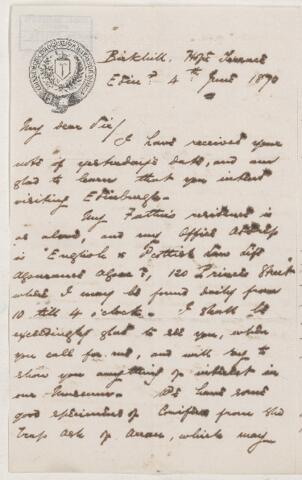 Birkhill, Hope Terrace
Edinr. 4th June 1870
My dear Sir/
I have received your
note of yesterday's date, and am
glad to learn that you intend
visiting Edinburgh.
My Father's residence is
as above, and my Office Address
is "English & Scottish Law Life
Assurance Assocn., 120 Princes Street"
where I may be found daily from
10 till 4 o'clock. I shall be
exceedingly glad to see you, when
you call for me, and will try to
show you anything of interest in
our Museum. We have some
good specimens of Conifers from the
Trap Ash of Arran, which may